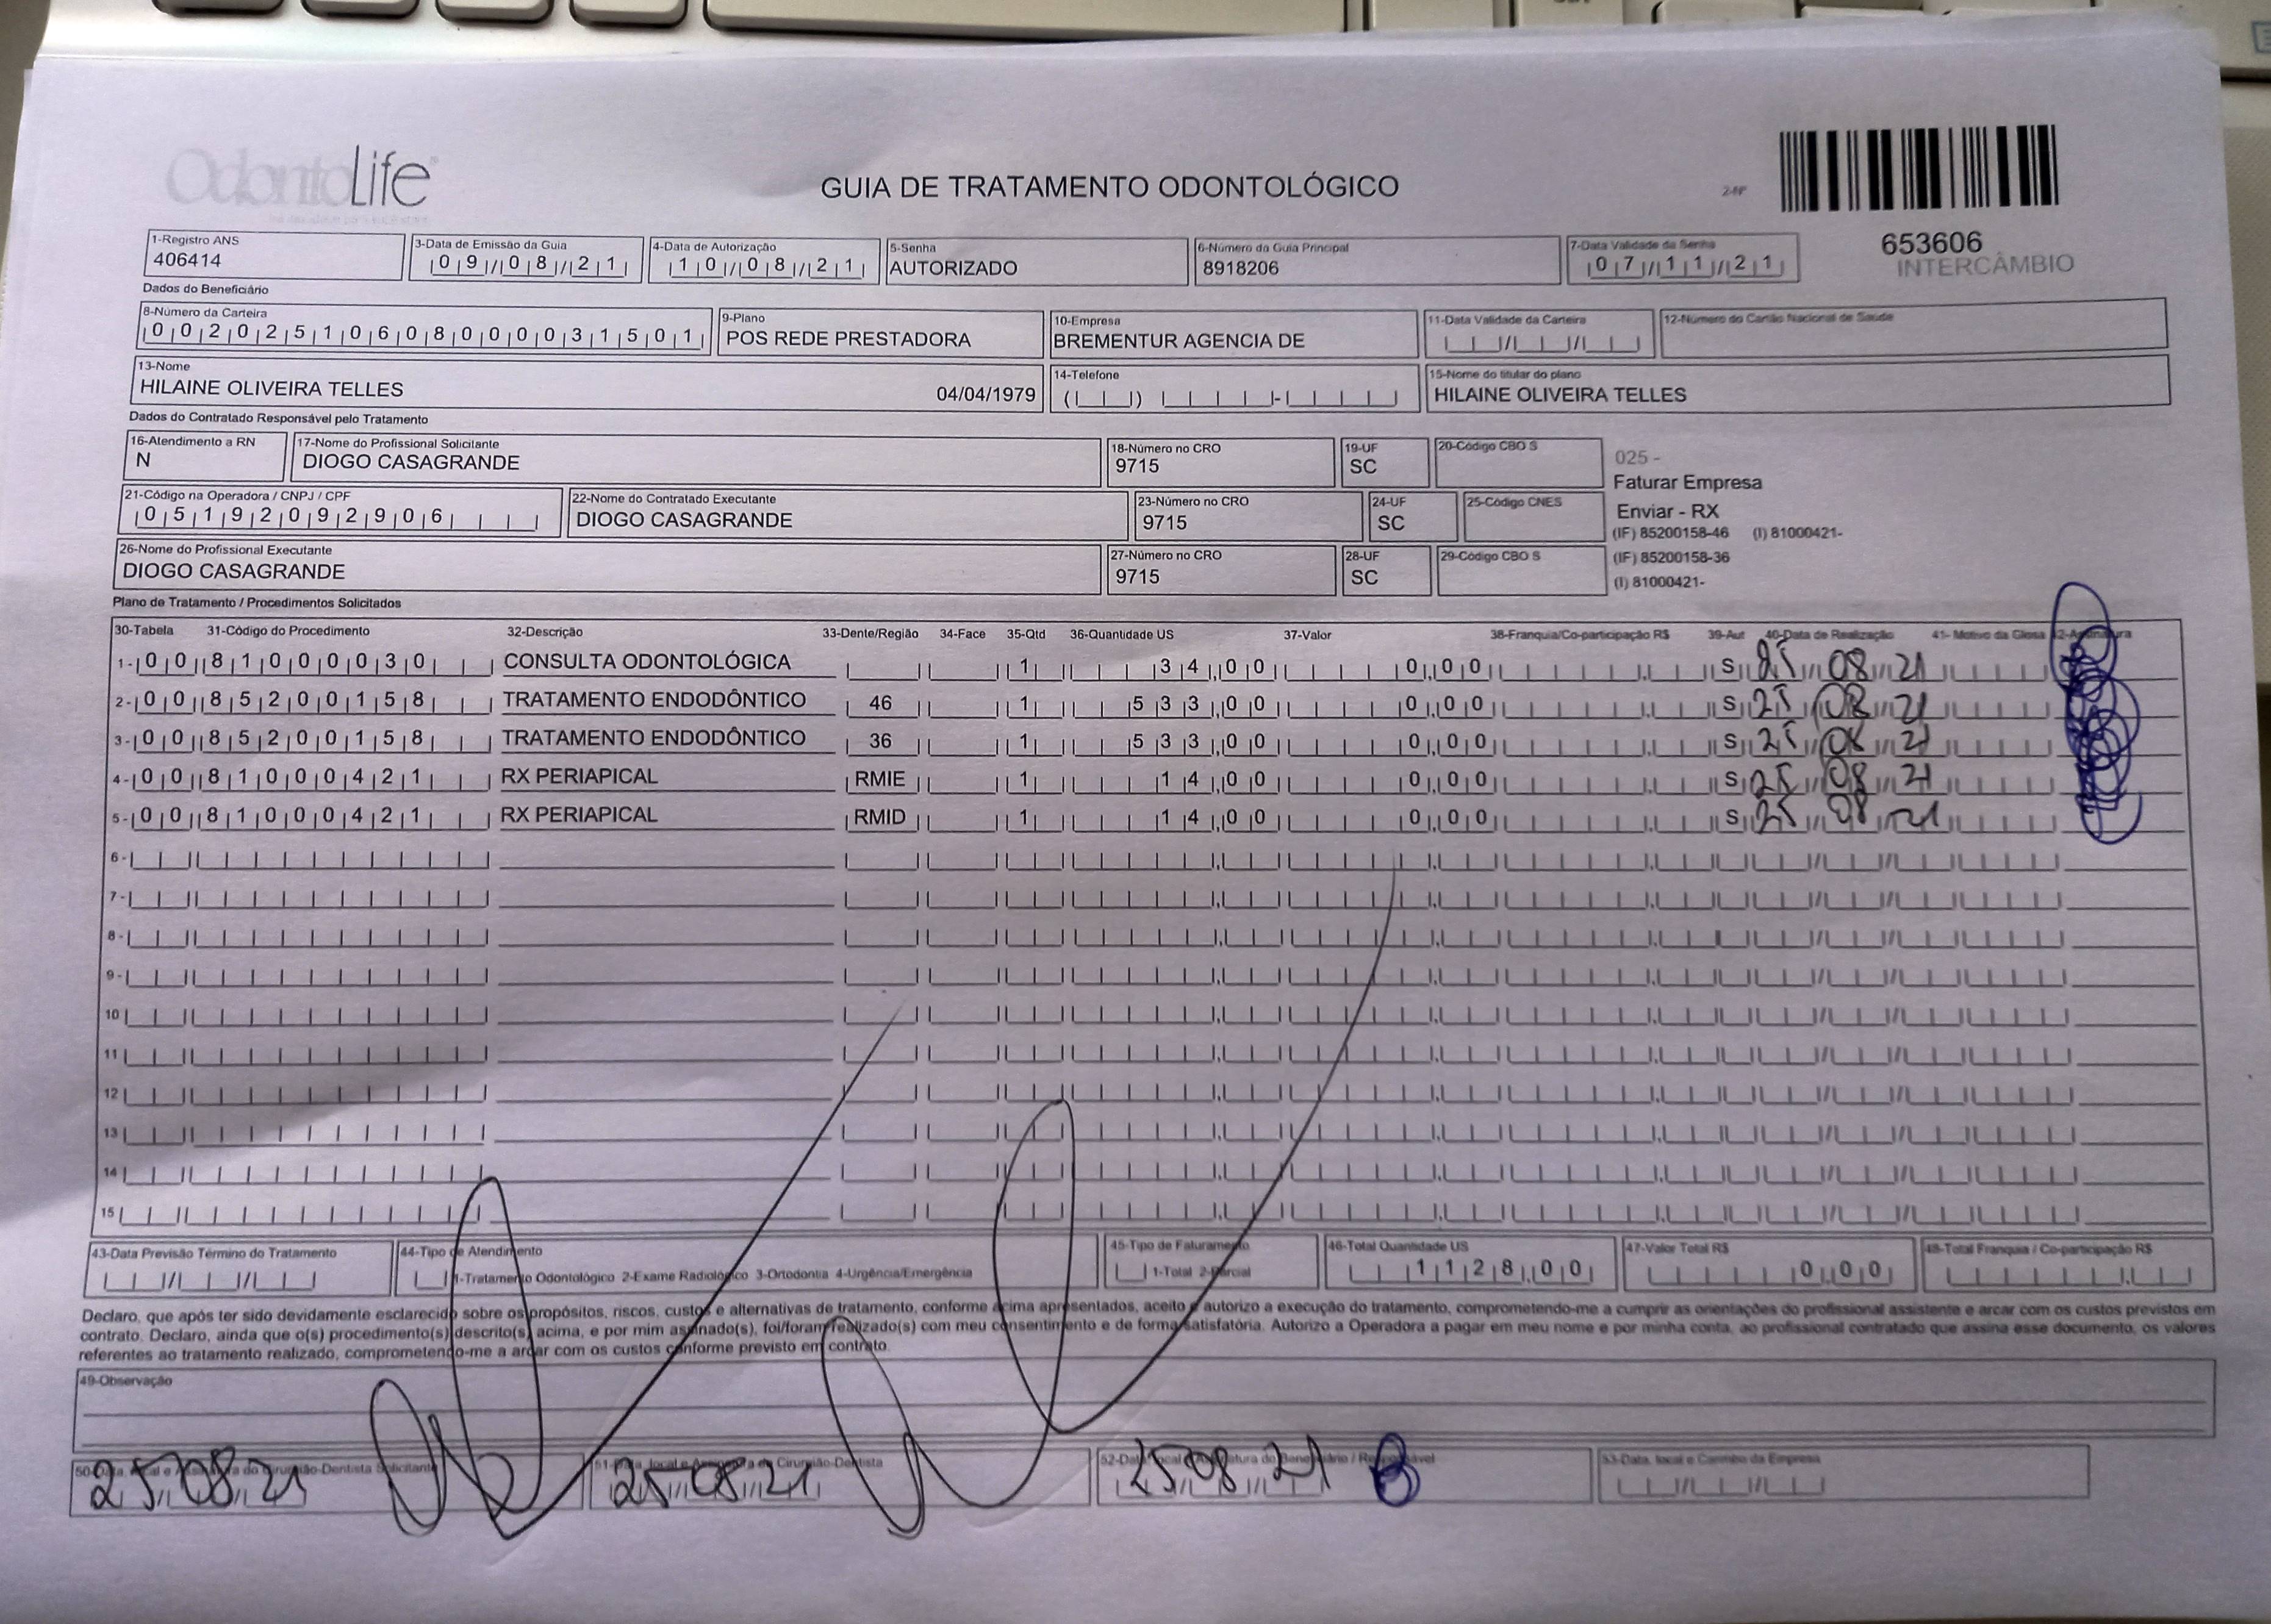 OdontoLife
GUIA DE TRATAMENTO ODONTOLÓGICO
653606
INTERCÂMBIO
1-Registro ANS 3-Data de Emissão da Guia 4-Data de Autorização 5-Senha 6-Número da Guia Principal 7-Data Validade da Senha
406414 09/08/21 10/08/21 AUTORIZADO 8918206 07/11/21
Dados do Beneficiário
8-Número da Carteira 9-Plano 10-Empresa 11-Data Validade da Carteira 12-Número do Cartão Nacional de Saúde
00202510608000031501 POS REDE PRESTADORA BREMENTUR AGENCIA DE
13-Nome 14-Telefone 15-Nome do titular do plano
HILAINE OLIVEIRA TELLES 04/04/1979 HILAINE OLIVEIRA TELLES
Dados do Contratado Responsável pelo Tratamento
16-Atendimento a RN 17-Nome do Profissional Solicitante 18-Número no CRO 19-UF 20-Código CBO S
N DIOGO CASAGRANDE 9715 SC
025 -
Faturar Empresa
Enviar - RX
(IF) 85200158-46 (I) 81000421-
(IF) 85200158-36
(I) 81000421-
21-Código na Operadora / CNPJ / CPF 22-Nome do Contratado Executante 23-Número no CRO 24-UF 25-Código CNES
05192092906 DIOGO CASAGRANDE 9715 SC
26-Nome do Profissional Executante 27-Número no CRO 28-UF 29-Código CBO S
DIOGO CASAGRANDE 9715 SC
Plano de Tratamento / Procedimentos Solicitados
30-Tabela 31-Código do Procedimento 32-Descrição 33-Dente/Região 34-Face 35-Qtd 36-Quantidade US 37-Valor 38-Franquia/Co-participação R$ 39-Aut 40-Data de Realização 41- Motivo da Glosa 42-Assinatura
1- 00 81000030 CONSULTA ODONTOLÓGICA 1 34,00 0,00 S 25 08 21
2- 00 85200158 TRATAMENTO ENDODÔNTICO 46 1 533,00 0,00 S 25 08 21
3- 00 85200158 TRATAMENTO ENDODÔNTICO 36 1 533,00 0,00 S 25 08 21
4- 00 81000421 RX PERIAPICAL RMIE 1 14,00 0,00 S 25 08 21
5- 00 81000421 RX PERIAPICAL RMID 1 14,00 0,00 S 25 08 21
6-
7-
8-
9-
10
11
12
13
14
15
43-Data Previsão Término do Tratamento 44-Tipo de Atendimento 45-Tipo de Faturamento 46-Total Quantidade US 47-Valor Total R$ 48-Total Franquia / Co-participação R$
1-Tratamento Odontológico 2-Exame Radiológico 3-Ortodontia 4-Urgência/Emergência 1-Total 2-Parcial 1128,00 0,00
Declaro, que após ter sido devidamente esclarecido sobre os propósitos, riscos, custos e alternativas de tratamento, conforme acima apresentados, aceito e autorizo a execução do tratamento, comprometendo-me a cumprir as orientações do profissional assistente e arcar com os custos previstos em
contrato. Declaro, ainda que o(s) procedimento(s) descrito(s) acima, e por mim assinado(s), foi/foram realizado(s) com meu consentimento e de forma satisfatória. Autorizo a Operadora a pagar em meu nome e por minha conta, ao profissional contratado que assina esse documento, os valores
referentes ao tratamento realizado, comprometendo-me a arcar com os custos conforme previsto em contrato.
49-Observação
50-Data, local e Assinatura do Cirurgião-Dentista Solicitante 51-Data, local e Assinatura do Cirurgião-Dentista 52-Data, local e Assinatura do Beneficiário / Responsável 53-Data, local e Carimbo da Empresa
25 08 21 25 08 21 25 08 21